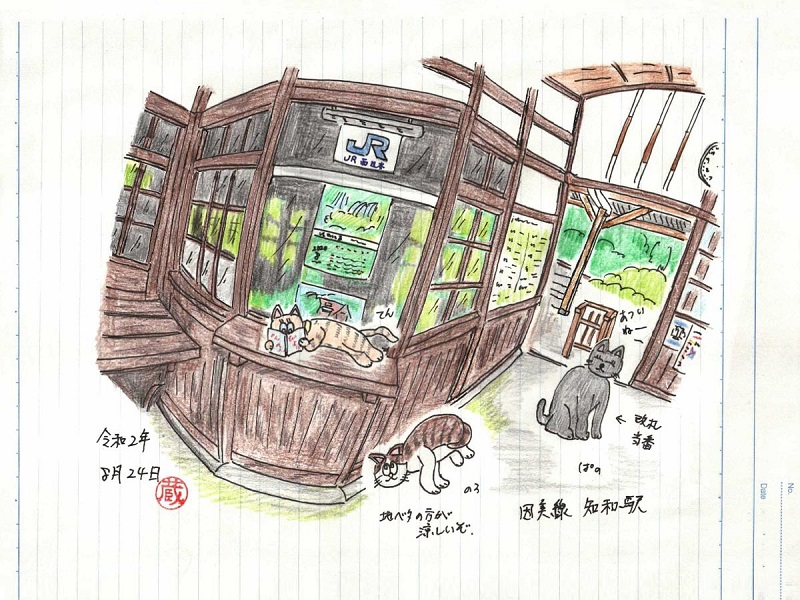 JR
JR西日本
てん
あつい
ねー
← 改札
当番
ぱの
のろ
地ベタの方が
涼しいぞ.
因美線 知和駅
令和2年
8月24日
蔵
No.
Date